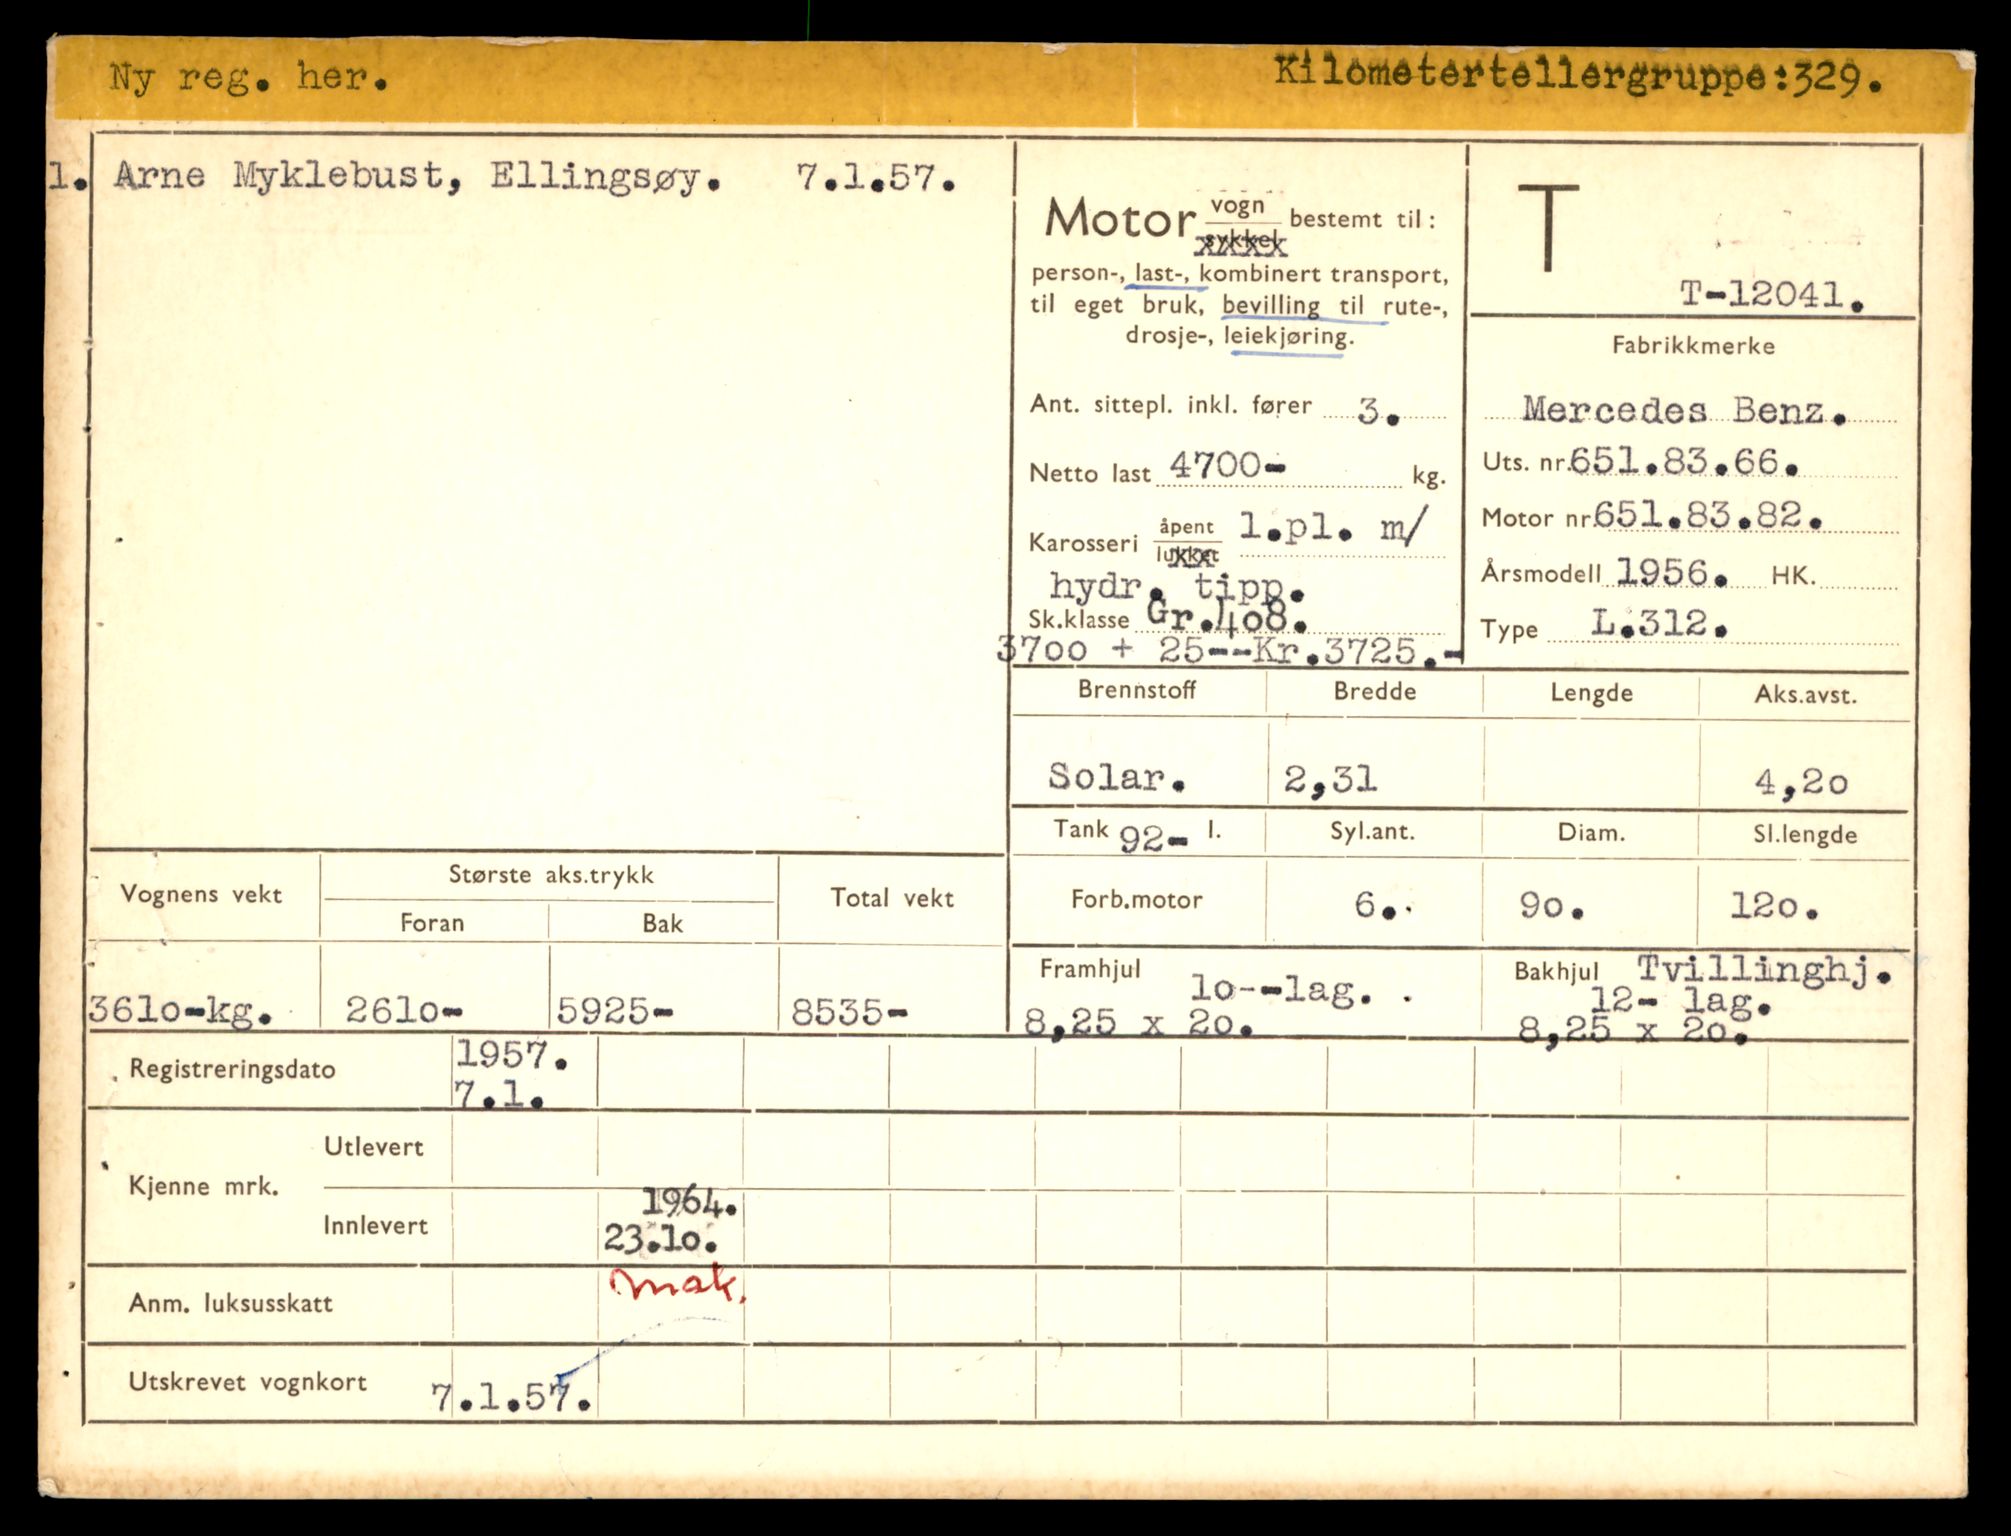 Ny reg. her. Kilometertellergruppe:329.
1. Arne Myklebust, Ellingsøy. 7.1.57.
Motor vogn bestemt til:
sykkel
person-, last-, kombinert transport,
til eget bruk, bevilling til rute-,
drosje-, leiekjøring.
Ant. sittepl. inkl. fører 3.
Netto last 4700- kg.
Karosseri åpent l.pl. m/
lukket
hydr. tipp.
Sk.klasse Gr.408.
3700 + 25--Kr.3725.-
T
T-12041.
Fabrikkmerke
Mercedes Benz.
Uts. nr. 651.83.66.
Motor nr. 651.83.82.
Årsmodell 1956. HK.
Type L.312.
Brennstoff Bredde Lengde Aks.avst.
Solar. 2,31 4,20
Tank 92- l. Syl.ant. Diam. Sl.lengde
Forb.motor 6. 90. 120.
Framhjul 10--lag.
8,25 x 20.
Bakhjul Tvillinghj.
12- lag.
8,25 x 20.
Vognens vekt Største aks.trykk Total vekt
Foran Bak
3610-kg. 2610- 5925- 8535-
Registreringsdato 1957.
7.1.
Kjenne mrk. Utlevert
Innlevert 1964.
23.10.
mak.
Anm. luksusskatt
Utskrevet vognkort 7.1.57.